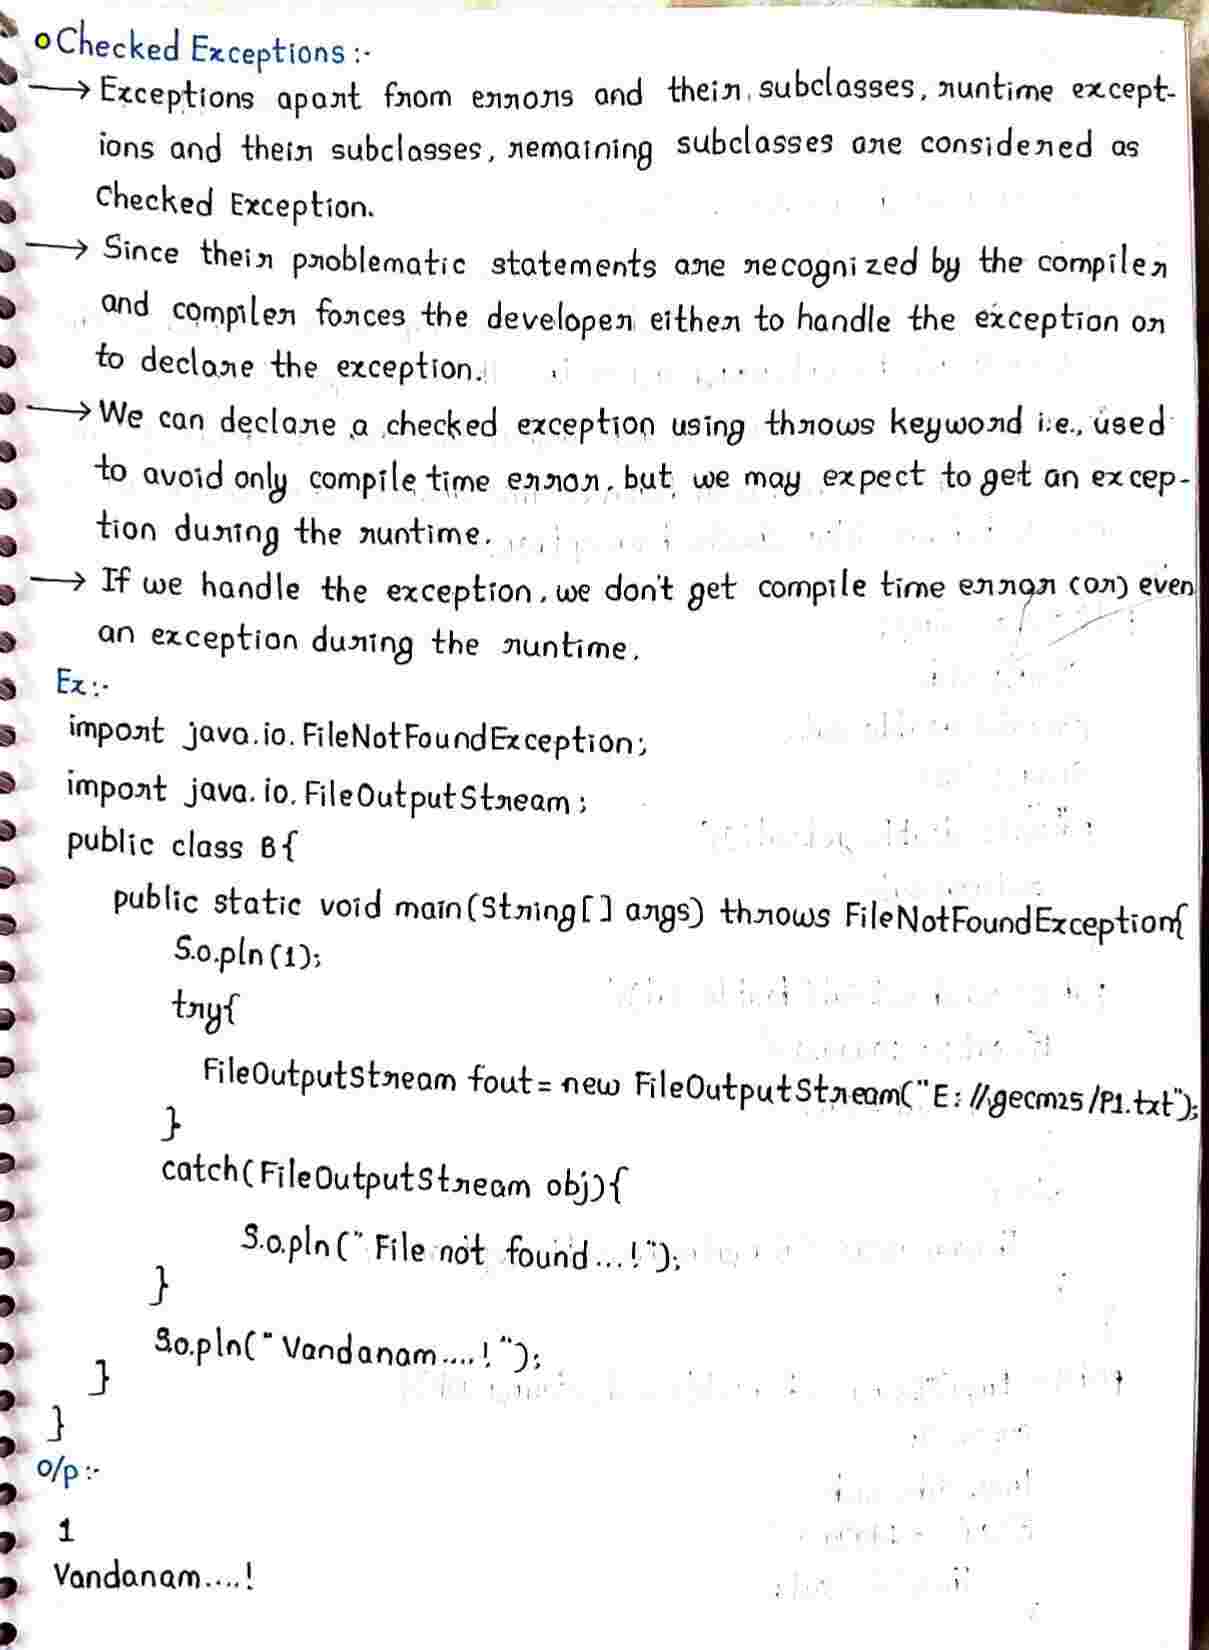 Checked Exceptions :-
→ Exceptions apart from errors and their subclasses, runtime except-
ions and their subclasses, remaining subclasses are considered as
Checked Exception.
→ Since their problematic statements are recognized by the compiler
and compiler forces the developer either to handle the exception or
to declare the exception.
→ We can declare a checked exception using throws keyword i.e., used
to avoid only compile time error, but we may expect to get an excep-
tion during the runtime.
→ If we handle the exception, we don't get compile time error (or) even
an exception during the runtime.
Ex :-
import java.io.FileNotFoundException;
import java.io.FileOutputStream;
public class B{
public static void main(String[] args) throws FileNotFoundException{
S.o.pln(1);
try{
FileOutputStream fout = new FileOutputStream("E://gecm25/P1.txt");
}
catch(FileOutputStream obj){
S.o.pln("File not found...!");
}
S.o.pln("Vandanam....!");
}
}
O/p :-
1
Vandanam....!